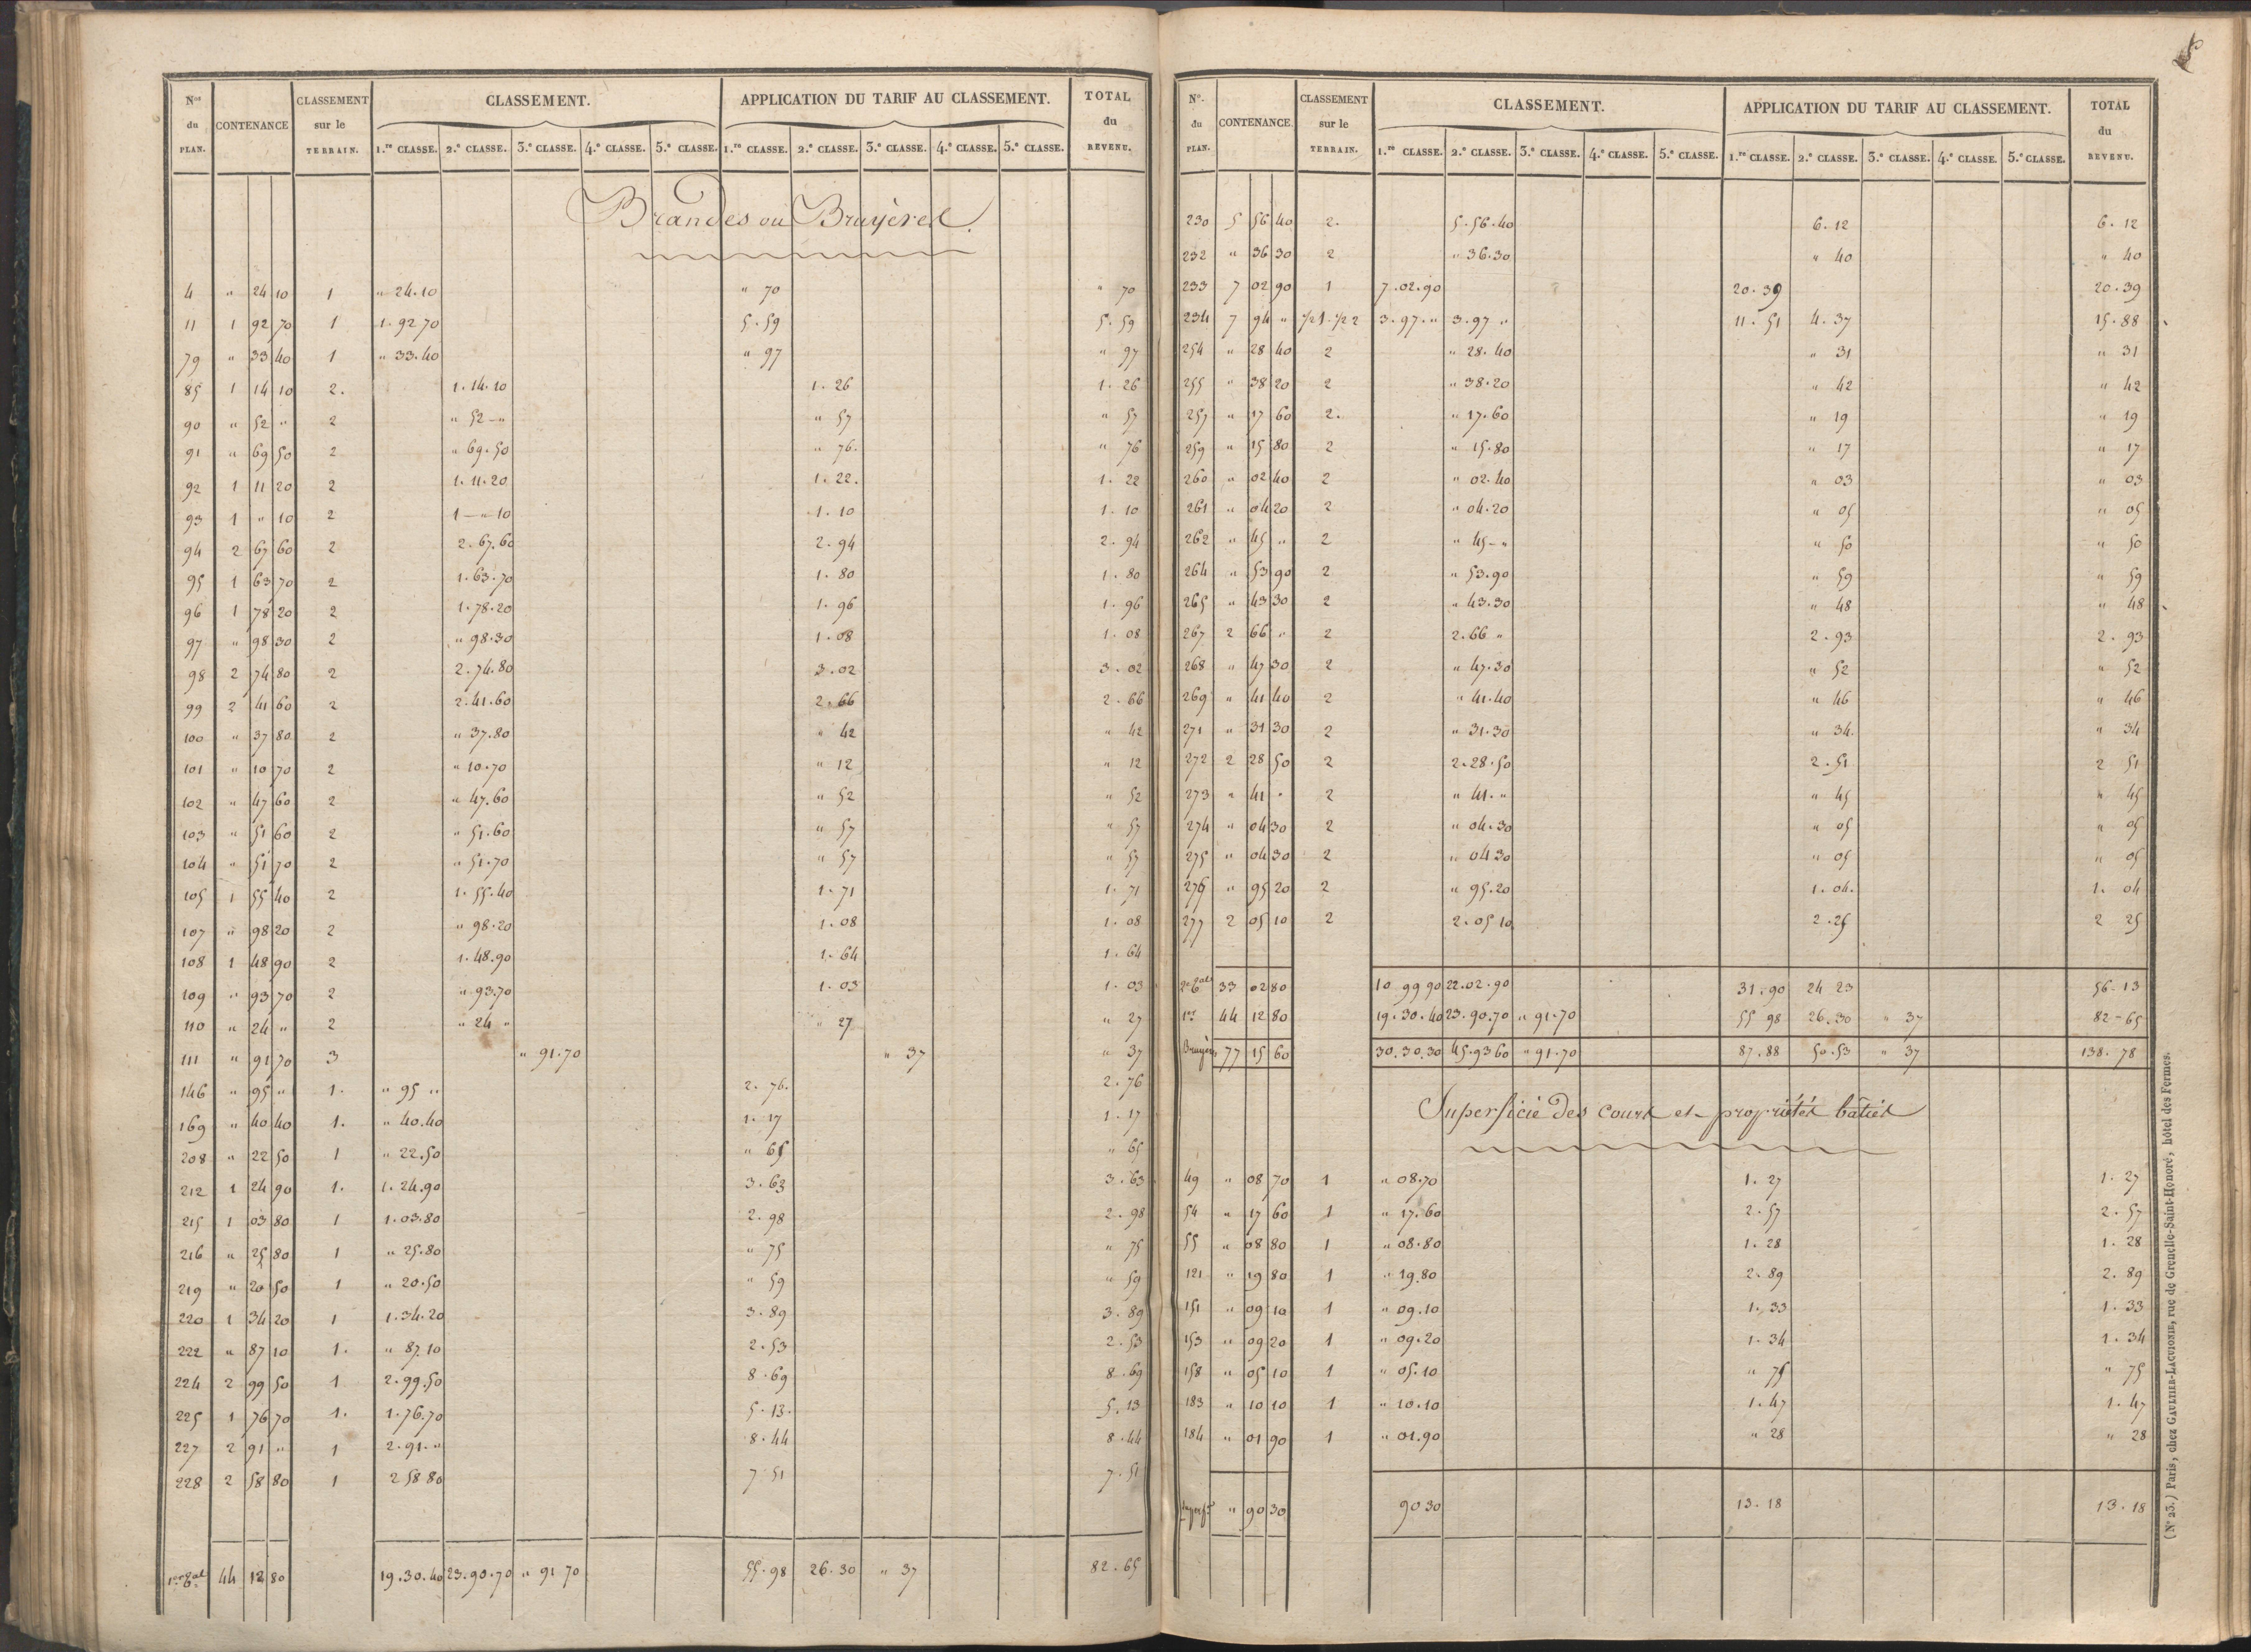 Nos du PLAN. CONTENANCE CLASSEMENT sur le TERRAIN. CLASSEMENT. APPLICATION DU TARIF AU CLASSEMENT. TOTAL du REVENU.
1.re CLASSE. 2.e CLASSE. 3.e CLASSE. 4.e CLASSE. 5.e CLASSE. 1.re CLASSE. 2.e CLASSE. 3.e CLASSE. 4.e CLASSE. 5.e CLASSE.
Brandes ou Bruyères.
4 " 24 10 1 " 24.10 " 70 " 70
11 1 92 70 1 1.92 70 5.59 5.59
79 " 33 40 1 " 33.40 " 97 " 97
85 1 14 10 2. 1.14.10 1.26 1.26
90 " 52 " 2 " 52 - " " 57 " 57
91 " 69 50 2 " 69.50 " 76. " 76
92 1 11 20 2 1.11.20 1.22. 1.22
93 1 " 10 2 1 - " 10 1.10 1.10
94 2 67 60 2 2.67.60 2.94 2.94
95 1 63 70 2 1.63.70 1.80 1.80
96 1 78 20 2 1.78.20 1.96 1.96
97 " 98 30 2 " 98.30 1.08 1.08
98 2 74 80 2 2.74.80 3.02 3.02
99 2 41 60 2 2.41.60 2.66 2.66
100 " 37 80 2 " 37.80 " 42 " 42
101 " 10 70 2 " 10.70 " 12 " 12
102 " 47 60 2 " 47.60 " 52 " 52
103 " 51 60 2 " 51.60 " 57 " 57
104 " 51 70 2 " 51.70 " 57 " 57
105 1 55 40 2 1.55.40 1.71 1.71
107 " 98 20 2 " 98.20 1.08 1.08
108 1 48 90 2 1.48.90 1.64 1.64
109 " 93 70 2 " 93.70 1.03 1.03
110 " 24 " 2 " 24 " " 27 " 27
111 " 91 70 3 " 91.70 " 37 " 37
146 " 95 " 1. " 95 " 2.76. 2.76
169 " 40 40 1. " 40.40 1.17 1.17
208 " 22 50 1 " 22.50 " 65 " 65
212 1 24 90 1. 1.24.90 3.63 3.63
215 1 03 80 1 1.03.80 2.98 2.98
216 " 25 80 1 " 25.80 " 75 " 75
219 " 20 50 1 " 20.50 " 59 " 59
220 1 34 20 1 1.34.20 3.89 3.89
222 " 87 10 1. " 87.10 2.53 2.53
224 2 99 50 1 2.99.50 8.69 8.69
225 1 76 70 1. 1.76.70 5.13. 5.13
227 2 91 " 1 2.91." 8.44 8.44
228 2 58 80 1 2 58 80 7.51 7.51
44 12 80 19.30.40 23.90.70 " 91 70 55.98 26.30 " 37 82.65
No. du PLAN. CONTENANCE. CLASSEMENT sur le TERRAIN. CLASSEMENT. APPLICATION DU TARIF AU CLASSEMENT. TOTAL du REVENU.
1.re CLASSE. 2.e CLASSE. 3.e CLASSE. 4.e CLASSE. 5.e CLASSE. 1.re CLASSE. 2.e CLASSE. 3.e CLASSE. 4.e CLASSE. 5.e CLASSE.
230 5 56 40 2. 5.56.40 6.12 6.12
232 " 36 30 2 " 36.30 " 40 " 40
233 7 02 90 1 7.02.90 20.39 20.39
234 7 94 " 1/2 1. 1/2 2 3.97." 3.97 " 11.51 4.37 15.88
254 " 28 40 2 " 28.40 " 31 " 31
255 " 38 20 2 " 38.20 " 42 " 42
257 " 17 60 2. " 17.60 " 19 " 19
259 " 15 80 2 " 15.80 " 17 " 17
260 " 02 40 2 " 02.40 " 03 " 03
261 " 04 20 2 " 04.20 " 05 " 05
262 " 45 " 2 " 45 - " " 50 " 50
264 " 53 90 2 " 53.90 " 59 " 59
265 " 43 30 2 " 43.30 " 48 " 48
267 2 66 " 2 2.66 " 2.93 2.93
268 " 47 30 2 " 47.30 " 52 " 52
269 " 41 40 2 " 41.40 " 46 " 46
271 " 31 30 2 " 31.30 " 34. " 34
272 2 28 50 2 2.28.50 2.51 2 51
273 " 41 " 2 " 41." " 45 " 45
274 " 04 30 2 " 04.30 " 05 " 05
275 " 04 30 2 " 04 30 " 05 " 05
276 " 95 20 2 " 95.20 1.04. 1.04
277 2 05 10 2 2.05 10 2.25 2 25
33 02 80 10 99 90 22.02.90 31.90 24 23 56-13
1er 44 12 80 19.30.40 23.90.70 " 91.70 55 98 26.30 " 37 82-65
Bruyères 77 15 60 30.30.30 45.93 60 " 91.70 87.88 50.53 " 37 138.78
Superficie des cours et propriétés bâties
49 " 08 70 1 " 08.70 1.27 1.27
54 " 17 60 1 " 17.60 2.57 2.57
55 " 08 80 1 " 08.80 1.28 1.28
121 " 19 80 1 " 19.80 2.89 2.89
151 " 09 10 1 " 09.10 1.33 1.33
153 " 09 20 1 " 09.20 1.34 1.34
158 " 05 10 1 " 05.10 " 75 " 75
183 " 10 10 1 " 10.10 1.47 1.47
184 " 01 90 1 " 01.90 " 28 " 28
" 90 30 90 30 13.18 13.18
(No 23.) Paris, chez GAULTIER-LAGUIONIE, rue de Grenelle-Saint-Honoré, hôtel des Fermes.